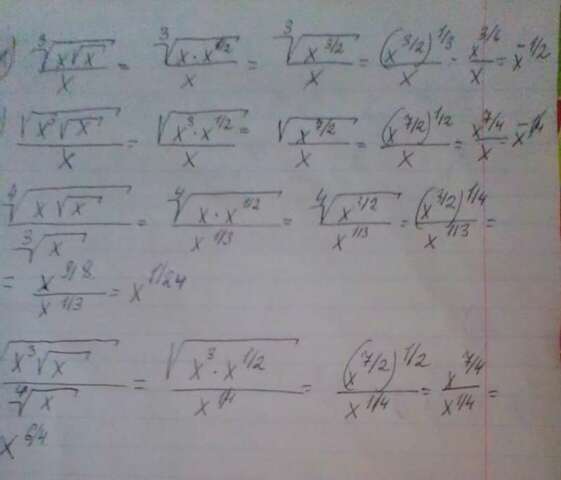 ) ∛(x√x)/x = ∛(x·x^1/2)/x = ∛(x^3/2)/x = (x^3/2)^1/3/x = x^3/6/x = x^-1/2
√(x³√x)/x = √(x³·x^1/2)/x = √(x^7/2)/x = (x^7/2)^1/2/x = x^7/4/x =
∜(x√x)/∛x = ∜(x·x^1/2)/x^1/3 = ∜(x^3/2)/x^1/3 = (x^3/2)^1/4/x^1/3 =
= x^3/8/x^1/3 = x^1/24
√(x³√x)/∜x = √(x³·x^1/2)/x^1/4 = (x^7/2)^1/2/x^1/4 = x^7/4/x^1/4 =
x^6/4